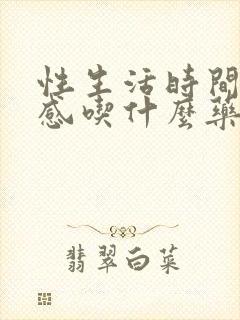 性生活時間
感喫什麼藥
翡翠白菜